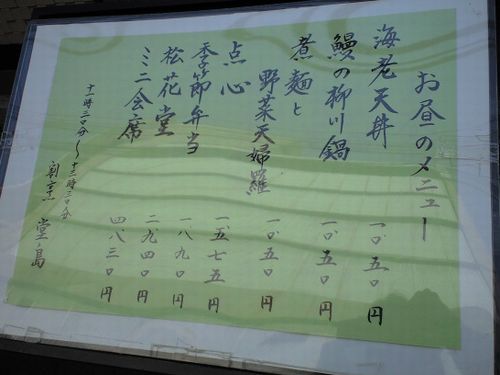 お昼のメニュー
海老天丼 一〇五〇円
鰻の柳川鍋 一〇五〇円
煮麺と
野菜天婦羅 一〇五〇円
点心 一五七五円
季節弁当 一八九〇円
松花堂 二九四〇円
ミニ会席 四八三〇円
十一時三〇分〜十三時三〇分
割烹 堂島